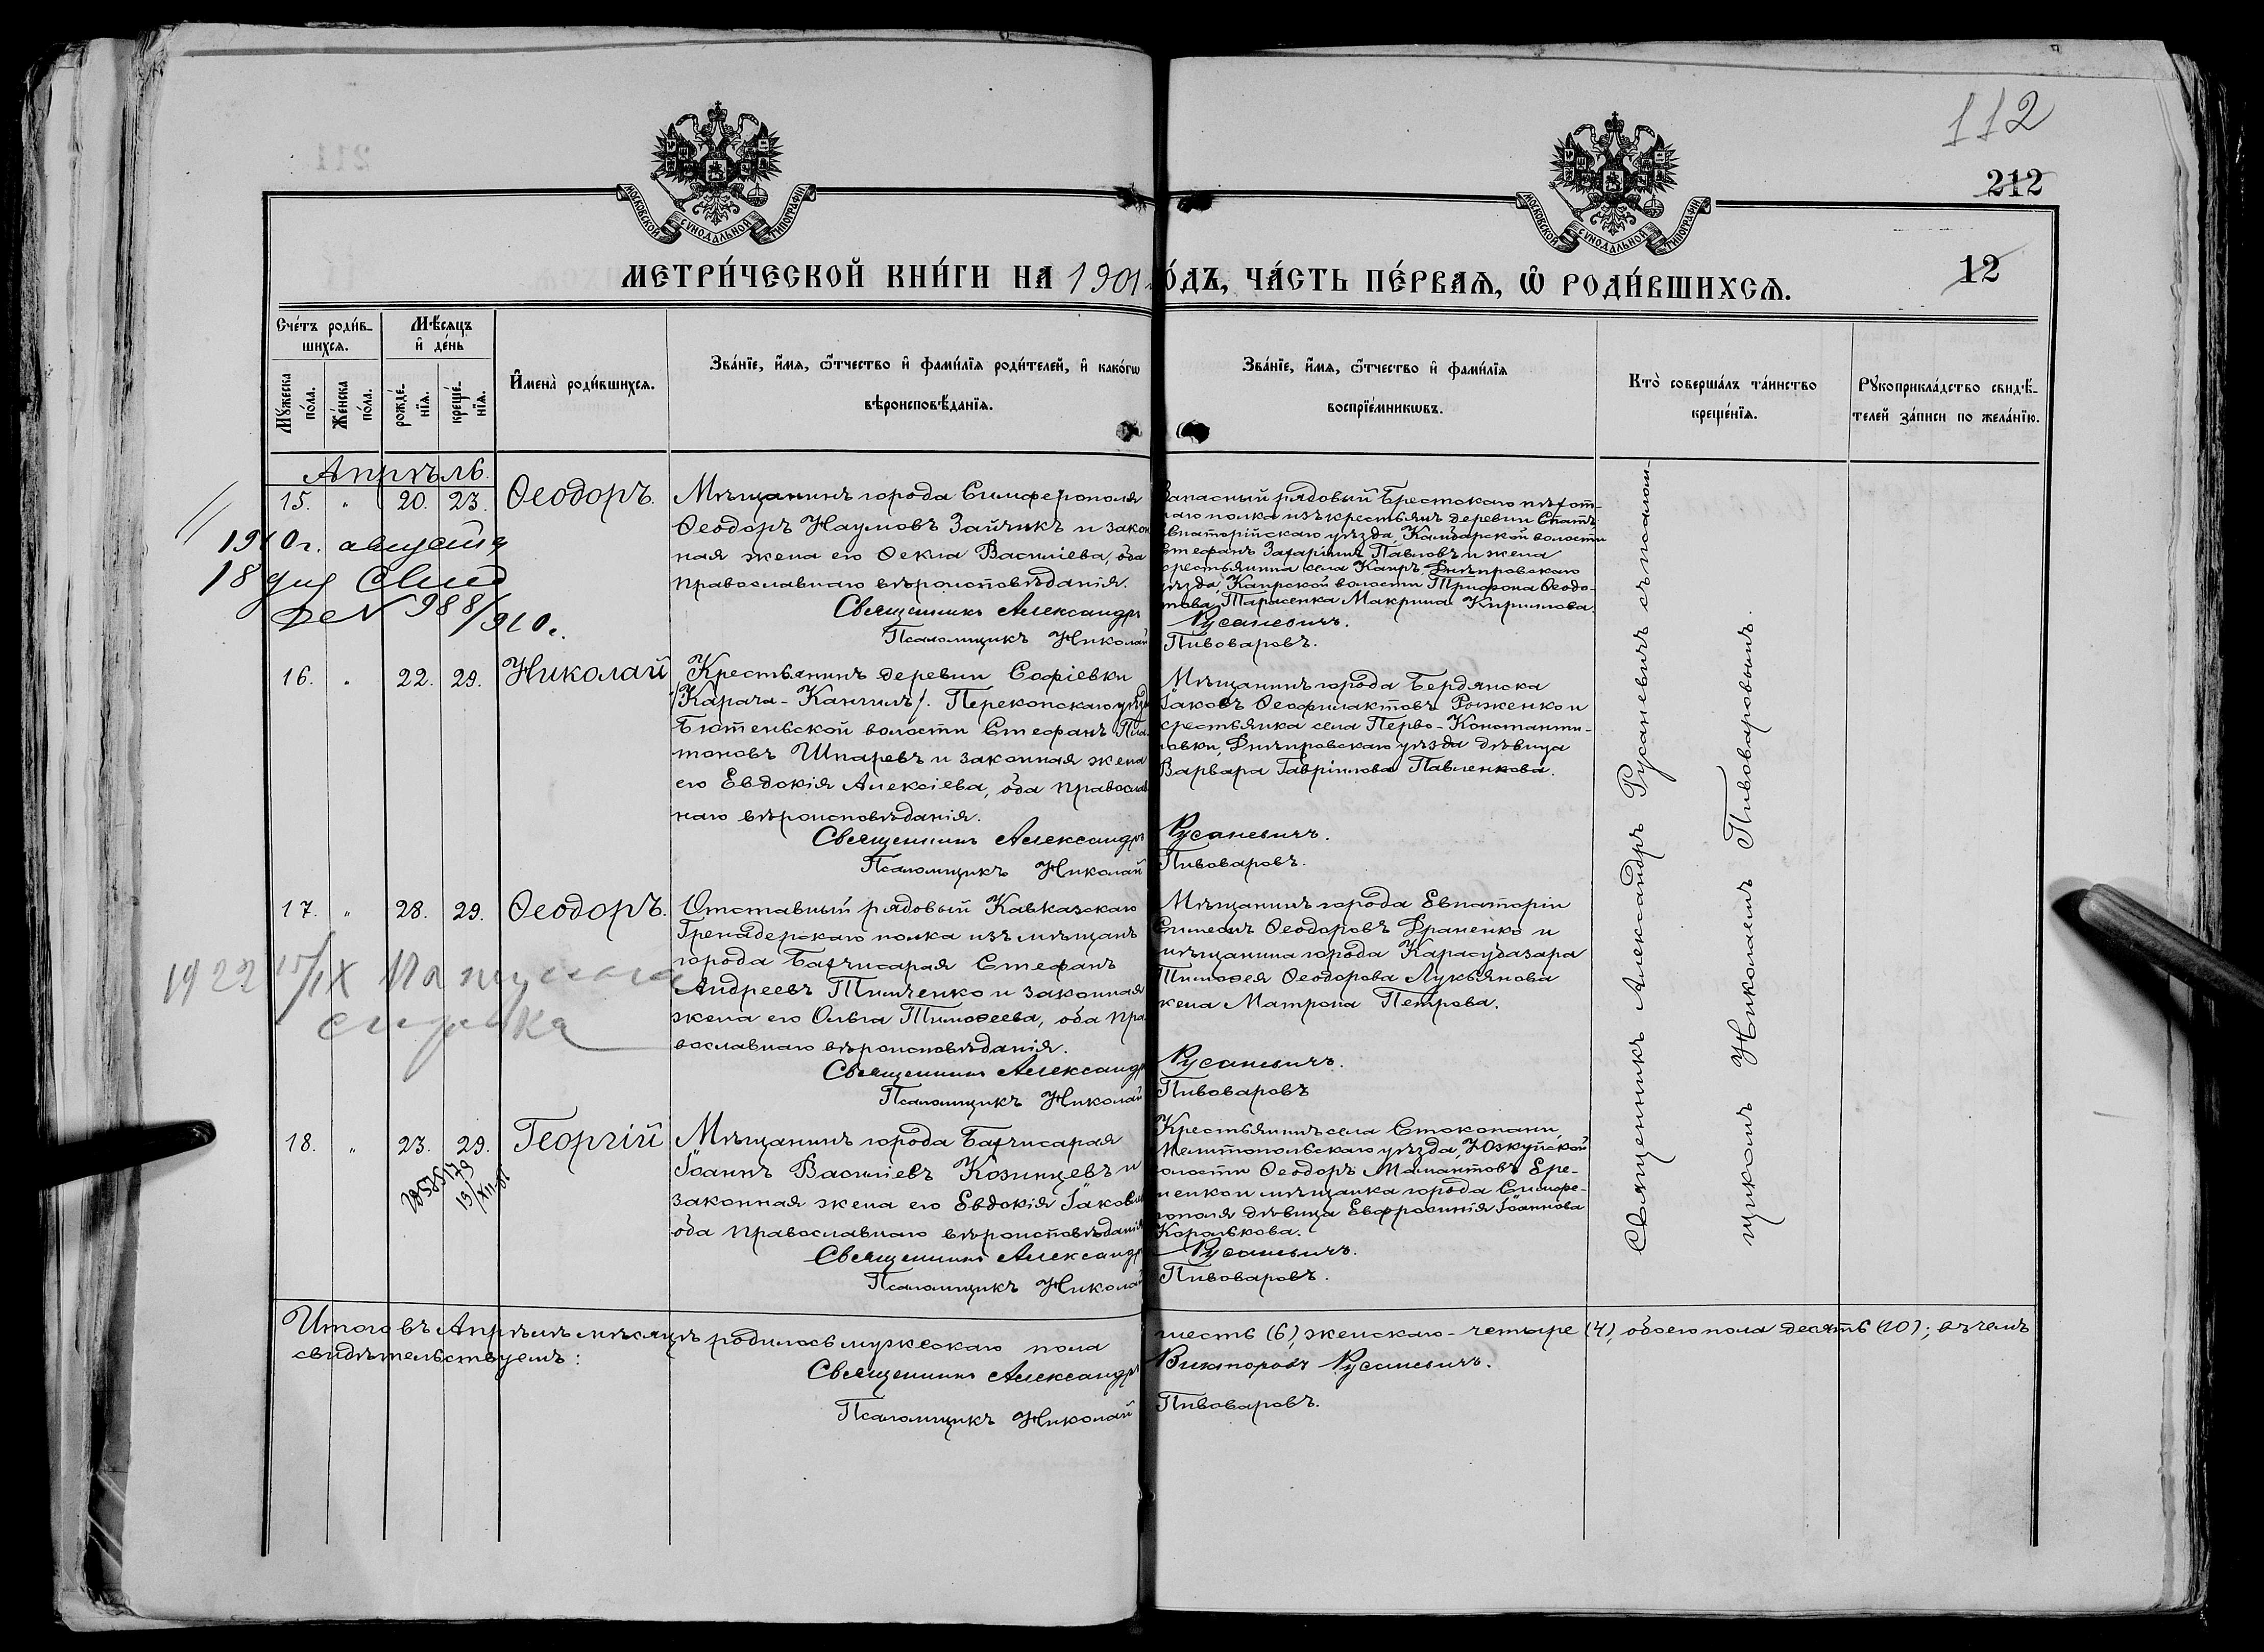 112
212
12
МОСКОВСКОЙ СѴНОДАЛЬНОЙ ТИПОГРАФІИ
МОСКОВСКОЙ СѴНОДАЛЬНОЙ ТИПОГРАФІИ
МЕТРИ́ЧЕСКОЙ КНИ́ГИ НА 1901 ГО́ДЪ, ЧА́СТЬ ПЕ́РВАѦ, Ѡ҆ РОДИ́ВШИХСѦ.
Сче́тъ роди́в-
шихсѧ.
Мѣ́сѧцъ
и҆ де́нь
Мꙋ́жеска
по́ла.
Же́нска
по́ла.
рожде́-
нїѧ.
креще́-
нїѧ.
И҆мена̀ роди́вшихсѧ.
Зва́нїе, и҆́мѧ, ѻ҆́тчество и҆ фами́лїѧ роди́телей, и҆ како́гѡ
вѣроисповѣ́данїѧ.
Зва́нїе, и҆́мѧ, ѻ҆́тчество и҆ фами́лїѧ
воспрїе́мникѡвъ.
Кто̀ соверша́лъ та́инство
креще́нїѧ.
Рꙋкоприкла́дство свидѣ́-
телей за́писи по жела́нїю.
Апрѣль.
15. " 20. 23. Ѳеодоръ.
Мѣщанинъ города Симферополя
Ѳеодоръ Наумовъ Зайчикъ и закон
ная жена его Ѳекла Василіева, оба
православнаго вѣроисповѣданія.
Священникъ Александръ
Псаломщикъ Николай
Запасный рядовый Брестскаго пѣхот-
наго полка изъ крестьянъ деревни Спатъ,
Евпаторійскаго уѣзда, Камбарской волости
Стефанъ Захаріинъ Павловъ и жена
крестьянина села Каиръ, Днѣпровскаго
уѣзда, Каирской волости Трифона Ѳеодо-
това Тарасенка Макрина Кириллова.
Русаневичъ.
Пивоваровъ.
1910 г. августа
18 дня Свид
№ 988/910 г.
16. " 22. 29. Николай
Крестьянинъ деревни Софіевки
/Карача-Кангилъ/. Перекопскаго уѣзда
Бютеньской волости Стефанъ Пла
тоновъ Шпаревъ и законная жена
его Евдокія Алексіева, оба православ
наго вѣроисповѣданія.
Священникъ Александръ
Псаломщикъ Николай
Мѣщанинъ города Бердянска
Іаковъ Ѳеофилактовъ Роженко и
крестьянка села Перво-Константи-
новки, Днѣпровскаго уѣзда дѣвица
Варвара Гавріилова Павленкова.
Русаневичъ.
Пивоваровъ.
17. " 28. 29. Ѳеодоръ.
Отставный рядовый Кавказскаго
Гренадерскаго полка изъ мѣщанъ
города Бахчисарая Стефанъ
Андреевъ Тимченко и законная
жена его Ольга Тимоѳеева, оба пра
вославнаго вѣроисповѣданія.
Священникъ Александръ
Псаломщикъ Николай
Мѣщанинъ города Евпаторіи
Симеонъ Ѳеодоровъ Драненко и
мѣщанина города Карасубазара
Тимоѳея Ѳеодорова Лукьянова
жена Матрона Петрова.
Русаневичъ.
Пивоваровъ
1922 15/IX
справка
18. " 23. 29. Георгій
Мѣщанинъ города Бахчисарая
Іоаннъ Василіевъ Козинцевъ и
законная жена его Евдокія Іаковлева
оба православнаго вѣроисповѣданія
Священникъ Александръ
Псаломщикъ Николай
Крестьянинъ села Стокопани,
Мелитопольскаго уѣзда, Юзкуйской
волости Ѳеодоръ Мамантовъ Ере-
менко и мѣщанка города Симфе-
рополя дѣвица Евфросинія Іоаннова
Королькова.
Русаневичъ.
Пивоваровъ.
Священникъ Александръ Русаневичъ съ псалом-
щикомъ Николаемъ Пивоваровымъ.
Итого въ Апрѣлѣ мѣсяцѣ родилось мужескаго пола шесть (6), женскаго - четыре (4), обоего пола десять (10); въ чемъ
свидѣтельствуемъ:
Священникъ Александръ Викторовъ Русаневичъ.
Псаломщикъ Николай Пивоваровъ.